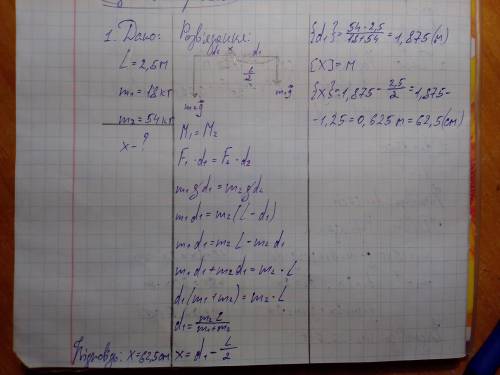 1. Дано:
L = 2,5м
m₁ = 18 кг
m₂ = 54 кг
x - ?
Розв'язання:
d₂ x d₁
L/2
m₂g⃗ m₁g⃗
M₁ = M₂
F₁ · d₁ = F₂ · d₂
m₁gd₁ = m₂gd₂
m₁d₁ = m₂(L - d₁)
m₁d₁ = m₂L - m₂d₁
m₁d₁ + m₂d₁ = m₂ · L
d₁(m₁ + m₂) = m₂ · L
d₁ = m₂L/m₁+m₂
x = d₁ - L/2
{d₁} = 54·2,5/18+54 = 1,875(м)
[X] = м
{x} = 1,875 - 2,5/2 = 1,875 -
-1,25 = 0,625 м = 62,5(см)
Відповідь: x = 62,5 см